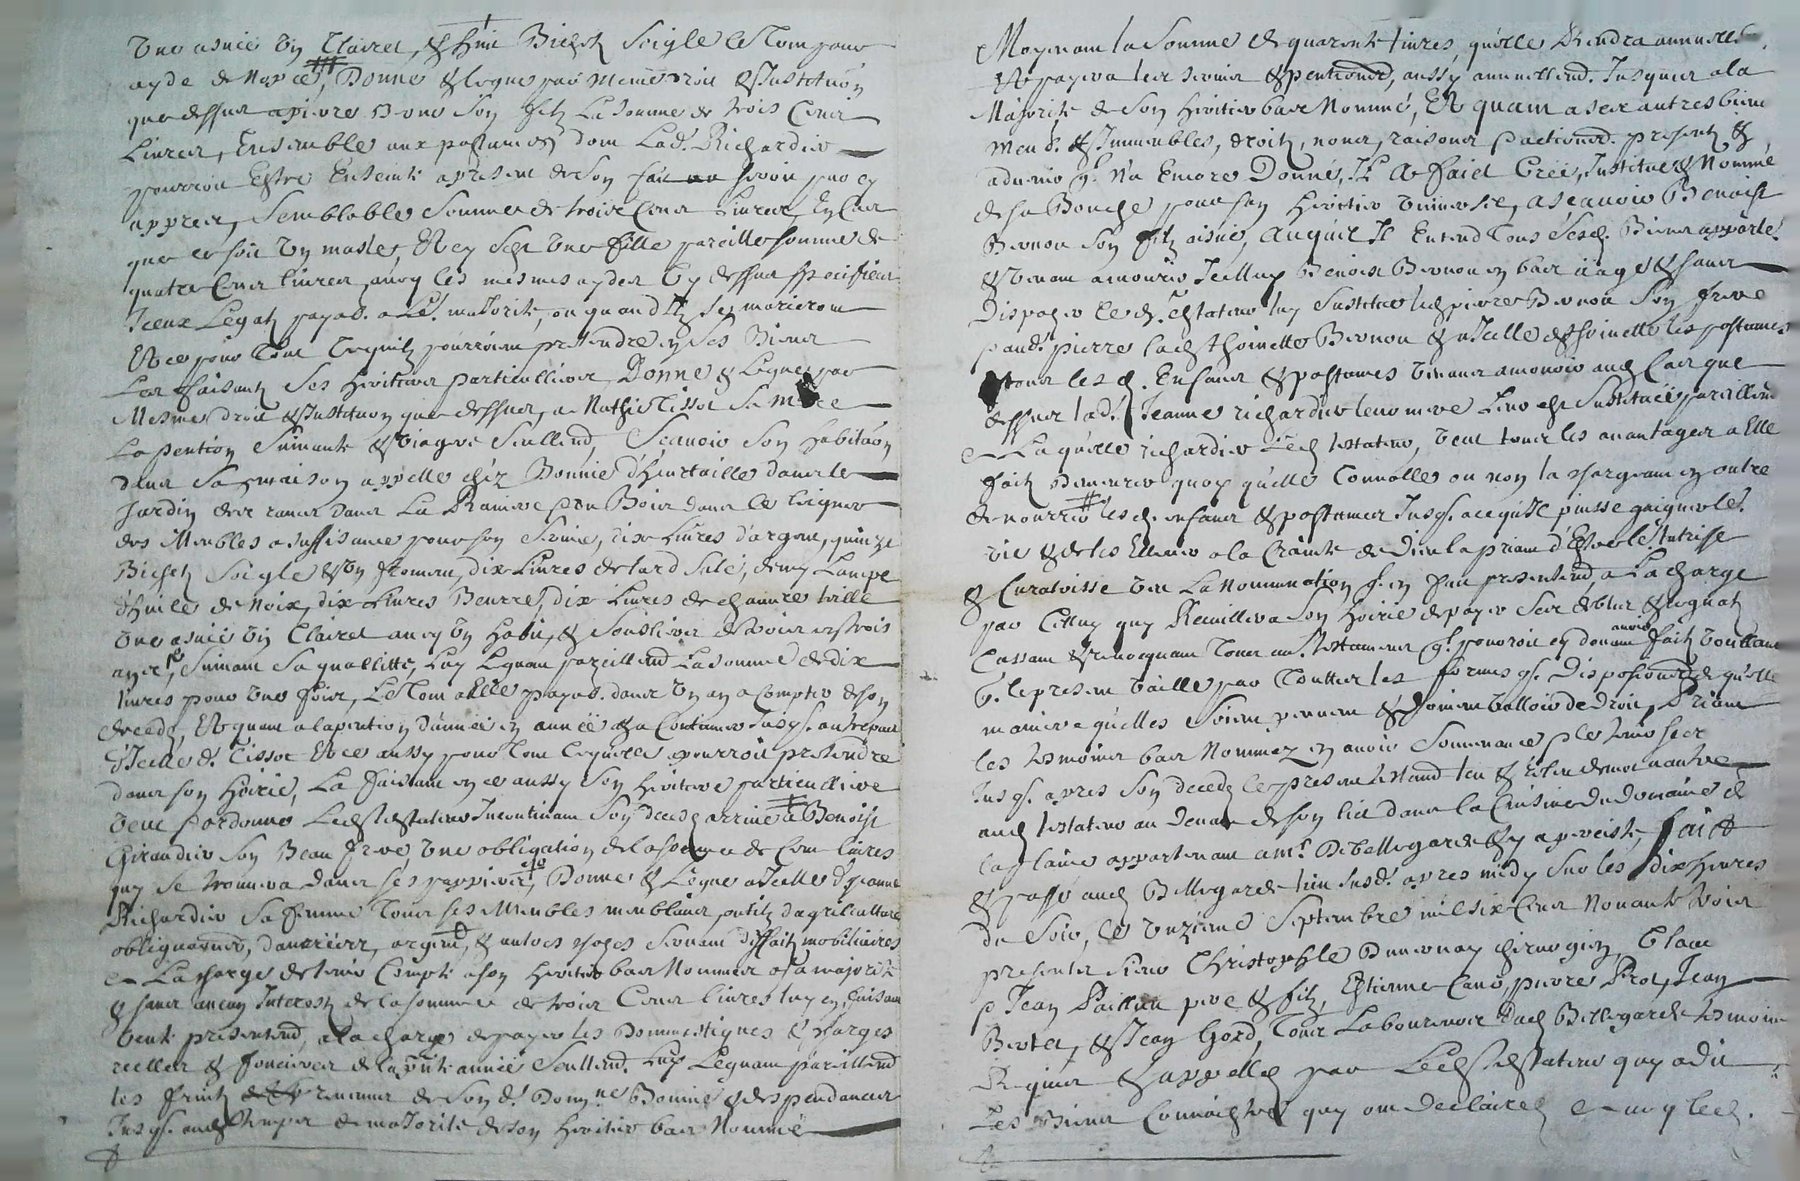 une asnée vin Clairet, & huit Bichetz Seigle le Tout pour
ayde de Nopce, Donne & legue par mesme droit & Institution
que dessus a pierre Bonnon Son filz La Somme de trois Cent
Livres, Ensemble aux postumes dont Lad. Richardier
pourroit Estre Enceinte a present de Son fait
appres, Semblable Somme de trois Cent Livres, En Cas
que ce soit un masle, Et ey Sest une fille pareille somme de
quatre Cent livres, avecq les mesmes aydes cy dessus specifiées
Iceux Legatz payab. a Le. majorité, ou quand Ilz Se marieront
Et ce pour Tout Ce quilz pourroient pretendre en Ses Biens
Les faisantz Ses heritiers particulliers, Donne & Legue par
Mesme droit & Institution que dessus, a Mathie Tissot Sa Mere
La pention Suivante & viagere Seullemt, Scauoir Son habitaon
dans Sa maison appellé chez Bonnié d'heurtaille dans le
Jardin des raues dans La Rauiere son Bois dans le bucher
des Meubles a suffisance pour son Service, dix Livres d'argent, quinze
Bichetz Seigle & un froment, dix Livres de lard Salé, demy Lampe
d'huile de Noix, dix Livres Beurre, dix Livres de chanvre taillé
une asnée vin Clairet avecq un habit, & Soulliers de trois en trois
année, Suivant Sa quallitté, Luy Leguant pareillemt La Somme de dix
livres pour une fois, Le Tout a Elle payab. dans un an a Compter de Son
deceds, Et quant a la pention d'année en année & a Continuer Jusqs. au trepas
d'Icelle d. Tissot Et ce aussy pour Tout Ce quelle pourroit pretendre
dans son hoirie, La faisant en ce aussy Son heritiere particulliere
Veut & ordonne Led. Testateur Incontinant Son deceds arrivé a Benoist
Giraudier Son Beau frere, une obligation de la Somme de Cent livres
quy Se trouvera dans Ses pappiers, Donne & Legue a Icelle d. Jeanne
Richardier Sa femme Tous Ses Meubles meublants, outilz d'agriculture
obligations, danrées, argent, & autres choses Servant d'effaitz mobiliaires
a La charge de tenir Compte a Son heritier bas Nommé a Sa majorité
& sans aucun Interest de la Somme de trois Cent livres luy en faisant
vente presentemt, a la charge de payer les Dommestiques & charges
reelles & foncieres de la pnte année Seullemt. Luy Leguant pareillemt
les fruitz & revenus de Son d. Domne Bonnié & despendances
Jusqs. aud. temps de majorité de son heritier bas Nommé
Moyenant la Somme de quarente livres, quelle Rendra annuellemt
Et payera les servis & pentions, aussy annuellemt. Jusques a la
Majorité de Son heritier bas Nommé, Et quant a Ses autres biens
meub. & Immeubles, droitz, noms, raisons & actions presents &
advenir qs. N'a Encore Donné, Il a fait Créé, Institué & Nommé
de Sa Bouche pour Son heritier universel, a Scauoir Benoist
Bonnon Son filz aisné, auquel Il Entend Tous Sesd. Biens appartr.
& venant a mourir Icelluy Benoist Bonnon en bas aage & sans
Disposer led. Testateur luy Substitue led. pierre Bonnon Son frere
& aud. pierre lad. Thoinette Bonnon & a Icelle d. Thoinette les postumes
& tous lesd. Enfans & postumes venant a mourir aud. Cas que
dessus lad. Jeanne richardier leur mere Leur est Substituée pareillemt
a Laquelle richardier Led. testateur, veut tous les avantages a Elle
faitz Demeurer quoy quelle Convolle ou non la chargeant en outre
de nourrir lesd. enfans & postumes Jusqs. a ce qu'Ilz puisse gaigner le.
vie & de les Eslever a la Crainte de Dieu la priant d'Estre le. tutrisse
& Curatrisse veu La Nomination qs. en fait presentemt, a La charge
par Celluy quy Recuillera Son hoirie de payer Ses debtes & legatz
Cassant & revocquant Tous au. testaments qs. pourroit cy devant avoir faitz voullant
qs. le present vaille par Touttes les formes qs. Dispositions de quelle
maniere quelles Soient peuvent & doivent valloir de Droit, Priant
les tesmoins bas Nommez en avoir Souvenance & le tenir secr
Jusqs. apres Son deceds le present testamt leu & releu de mot a autre
aud. testateur au Devant de Son lict dans la Cuisine du domaine de
la plaine appartenant a mr. De bellegarde & y a persisté, fait
& passé aud. Bellegarde lieu susd. apres midy sur les dix heures
du Soir, le unziesme Septembre mil six Cent Nonante trois
presents Sieur Christophle Dunevray chirurgien, Claue
& Jean Paillieu pere & filz, Estienne Cane, pierre Piot, Jean
Bertet, & Jean Gord, Tous Laboureurs Dud. Bellegarde tesmoins
Requis & appellez par Led. testateur quy a dit
Les Biens Connoistre quy ont Declairez avecq led.